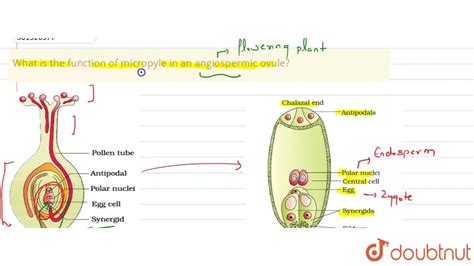 flowering plant
What is the function of micropyle in an angiospermic ovule?
Chalazal end
Antipodals
Pollen tube
Antipodal
Polar nuclei
Egg cell
Synergid
Endosperm
Polar nuclei
Central cell
Egg
Zygote
Synergids
doubtnut